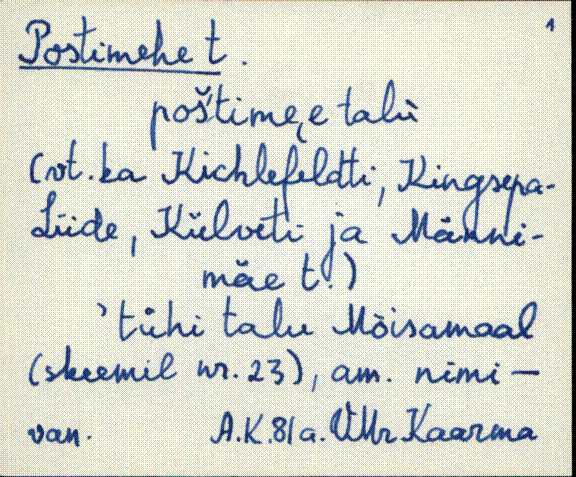 1
Postimehe t.
poštime̮e talu̇
(vt. ka Kichlefeldti, Kingsepa-
Liide, Külveti ja Männi-
mäe t.)
'tühi talu Mõisamaal
(skeemil nr. 23), am. nimi —
van. A.K. 81a. Kaarma